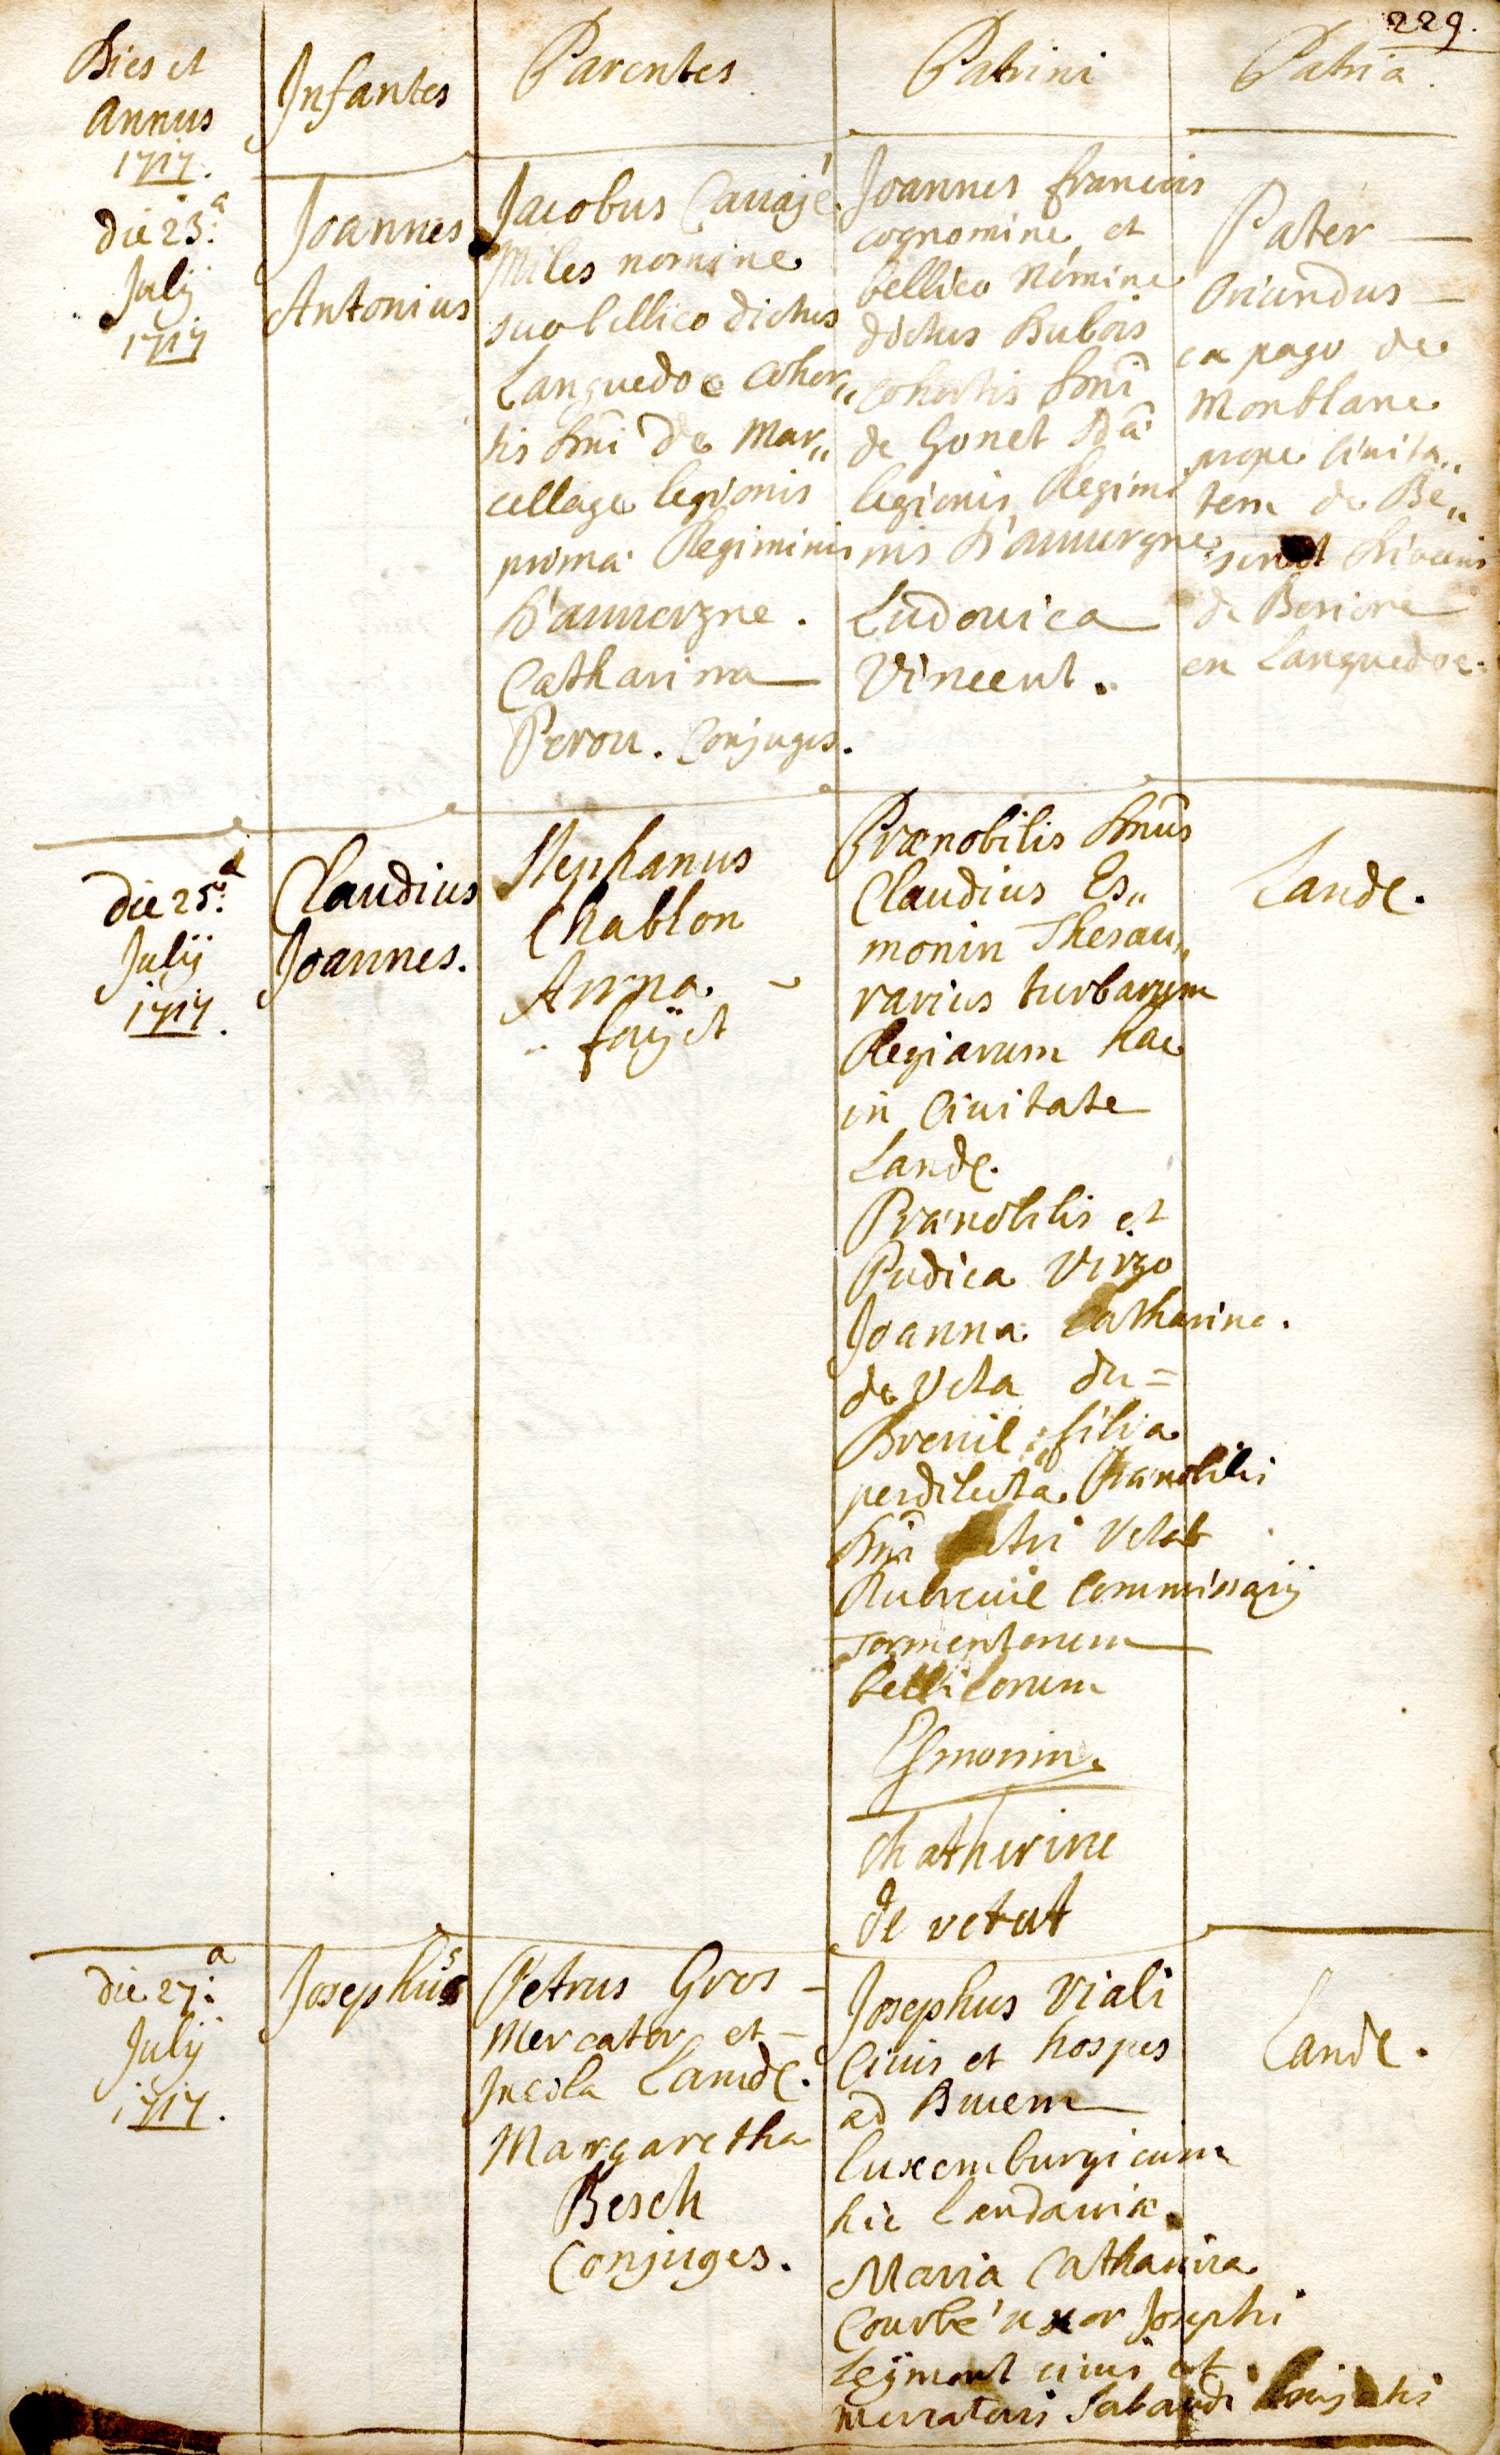 229.
Dies et
Annus
1717.
Infantes
Parentes
Patrini
Patria
die 23.a
Julij
1717
Joannes
Antonius
Jacobus
Miles nomine
suo bellico dictus
Languedoc cohor„
tis Dni De Mar„
cellage legionis
prima Regiminis
D'auvergne.
Catharina
Perou. Conjuges.
Joannes francois
cognomine et
bellico nomine
dictus Dubois
Cohortis Dni
de Gonet 2dae
legionis Regimi
nis D'auvergne
Ludovica
Vincent.
Pater
Oriundus
ex pago de
Monblanc
prope Civita„
tem de Be„
en Languedoc.
die 25.a
Julij
1717.
Claudius
Joannes.
Stephanus
Chablon
Anna
fayet
Prænobilis Dnus
Claudius Es„
monin Thesau„
rarius turbarum
Regiarum hac
in Civitate
Landę.
Prænobilis et
Pudica Virgo
Joanna Catharina.
de Veta du=
Breuil filia
perdilecta Prænobilis
Dni Vetat
Dubreuil Commissarij
Tormentorum
bellicorum
Esmonin
Chatherine
de vetat
Landę.
die 27.a
Julij
1717.
Josephus
Petrus Gros
Mercator et
Incola Landę.
Margaretha
Besch
Conjuges.
Josephus Viali
Civis et hospes
ad Ducem
Luxemburgicum
hic Landaviæ.
Maria Catharina
Courbé uxor Josephi
Leymont civis et
mercatoris
Landę.